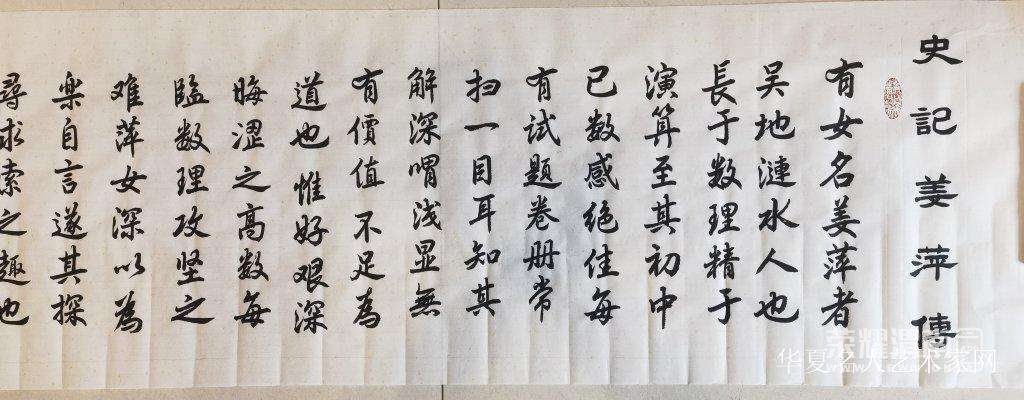 史記姜萍傳
有女名姜萍者
吴地漣水人也
長于数理精于
演算至其初中
已数感绝佳每
有试题卷册常
扫一目耳知其
解深喟浅显無
有價值不足為
道也惟好艰深
晦涩之高数每
臨数理攻坚之
难萍女深以為
楽自言遂其探
尋求索之趣也
华夏名人艺术家网